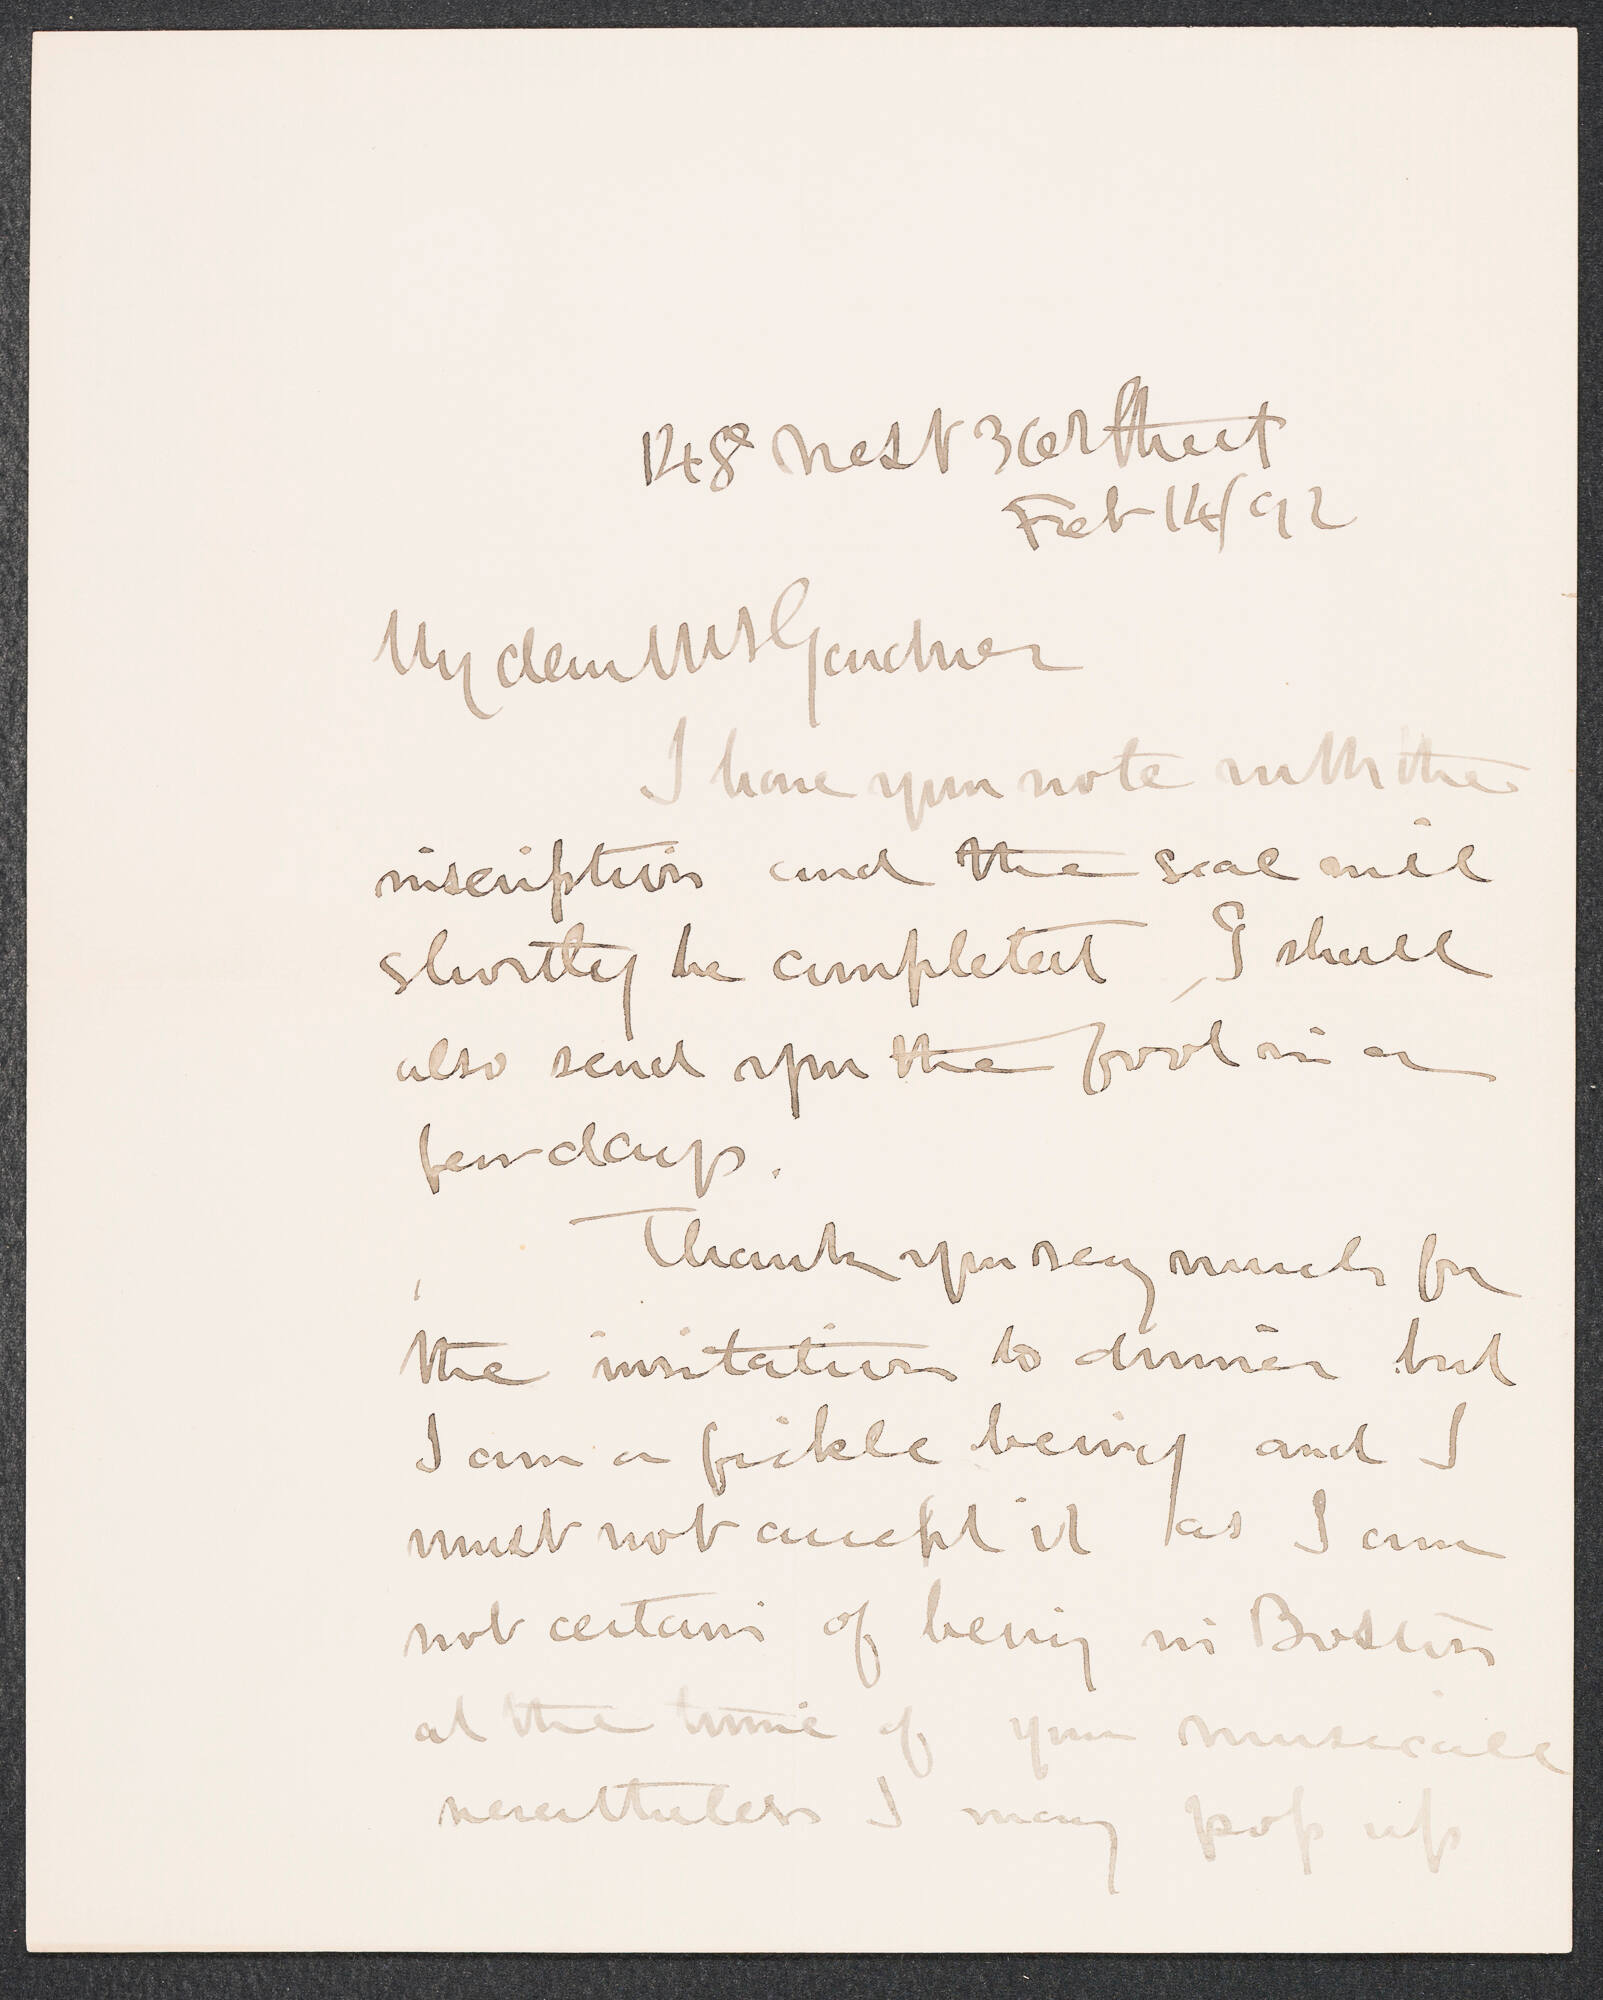 148 West 36th Street
Feb 14/92
My dear Mrs Gardner
I have your note with the
inscription and the seal will
shortly be completed, I shall
also send you the foot in a
few days.
Thank you very much for
the invitation to dinner but
I am a fickle being and I
must not accept it as I am
not certain of being in Boston
at the time of your musicale
nevertheless I may pop up